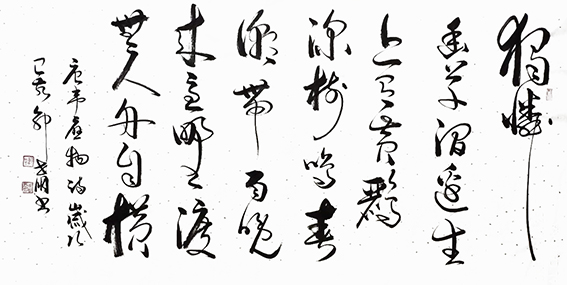 獨憐
幽草澗邊生
上有黃鸝
深樹鳴春
潮帶雨晚
来急野渡
無人舟自横
唐韦應物诗歲次
己亥